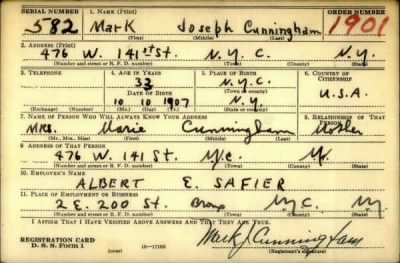 SERIAL NUMBER 1. NAME (Print) ORDER NUMBER
582 Mark Joseph Cunningham 1901
(First) (Middle) (Last)
2. ADDRESS (Print)
476 W. 141st St. N.Y.C. N.Y.
(Number and street or R. F. D. number) (Town) (County) (State)
3. TELEPHONE 4. AGE IN YEARS 5. PLACE OF BIRTH 6. COUNTRY OF CITIZENSHIP
33 N.Y.C.
DATE OF BIRTH (Town or county) U.S.A.
10 10 1907 N.Y.
(Exchange) (Number) (Mo.) (Day) (Yr.) (State or country)
7. NAME OF PERSON WHO WILL ALWAYS KNOW YOUR ADDRESS 8. RELATIONSHIP OF THAT PERSON
Mrs. Marie Cunningham Mother
(Mr., Mrs., Miss) (First) (Middle) (Last)
9. ADDRESS OF THAT PERSON
476 W. 141 St.
(Number and street or R. F. D. number) (Town) (County) (State)
10. EMPLOYER'S NAME
ALBERT E. SAFIER
11. PLACE OF EMPLOYMENT OR BUSINESS
2 E. 200 St. Bronx N.Y.C.
(Number and street or R. F. D. number) (Town) (County) (State)
I AFFIRM THAT I HAVE VERIFIED ABOVE ANSWERS AND THAT THEY ARE TRUE.
REGISTRATION CARD
D. S. S. Form 1 (over) 16—17105 Mark J. Cunningham
(Registrant's signature)